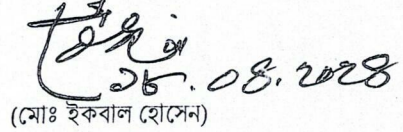 ১৮.০৪.২০২৪
(মোঃ ইকবাল হোসেন)